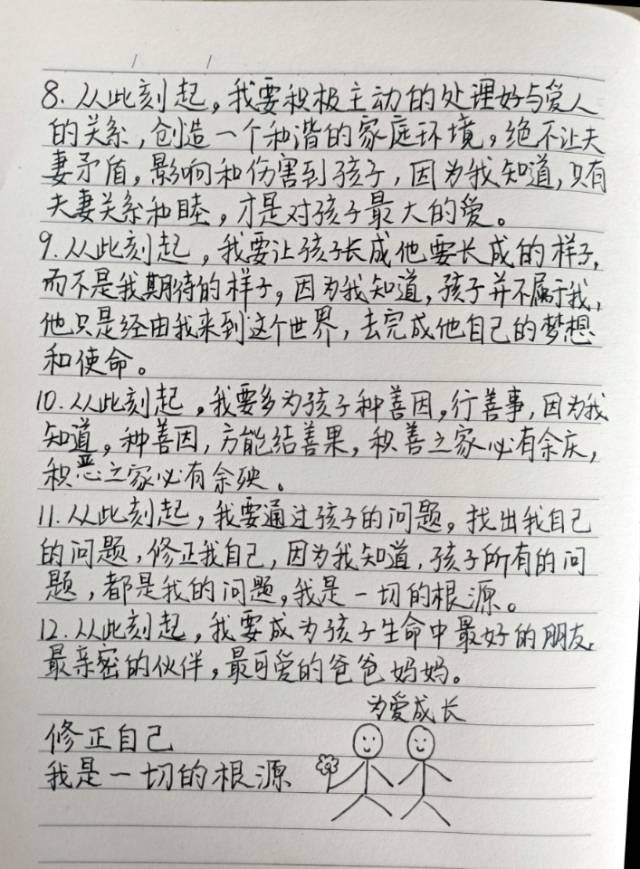 8. 从此刻起，我要积极主动的处理好与爱人
的关系，创造一个和谐的家庭环境。绝不让夫
妻矛盾，影响和伤害到孩子，因为我知道，只有
夫妻关系和睦，才是对孩子最大的爱。
9. 从此刻起，我要让孩子长成他要长成的样子，
而不是我期待的样子，因为我知道，孩子并不属于我，
他只是经由我来到这个世界，去完成他自己的梦想
和使命。
10. 从此刻起，我要多为孩子种善因，行善事，因为我
知道，种善因，方能结善果，积善之家必有余庆，
积恶之家必有余殃。
11. 从此刻起，我要通过孩子的问题，找出我自己
的问题，修正我自己，因为我知道，孩子所有的问
题，都是我的问题，我是一切的根源。
12. 从此刻起，我要成为孩子生命中最好的朋友，
最亲密的伙伴，最可爱的爸爸妈妈。
为爱成长
修正自己
我是一切的根源